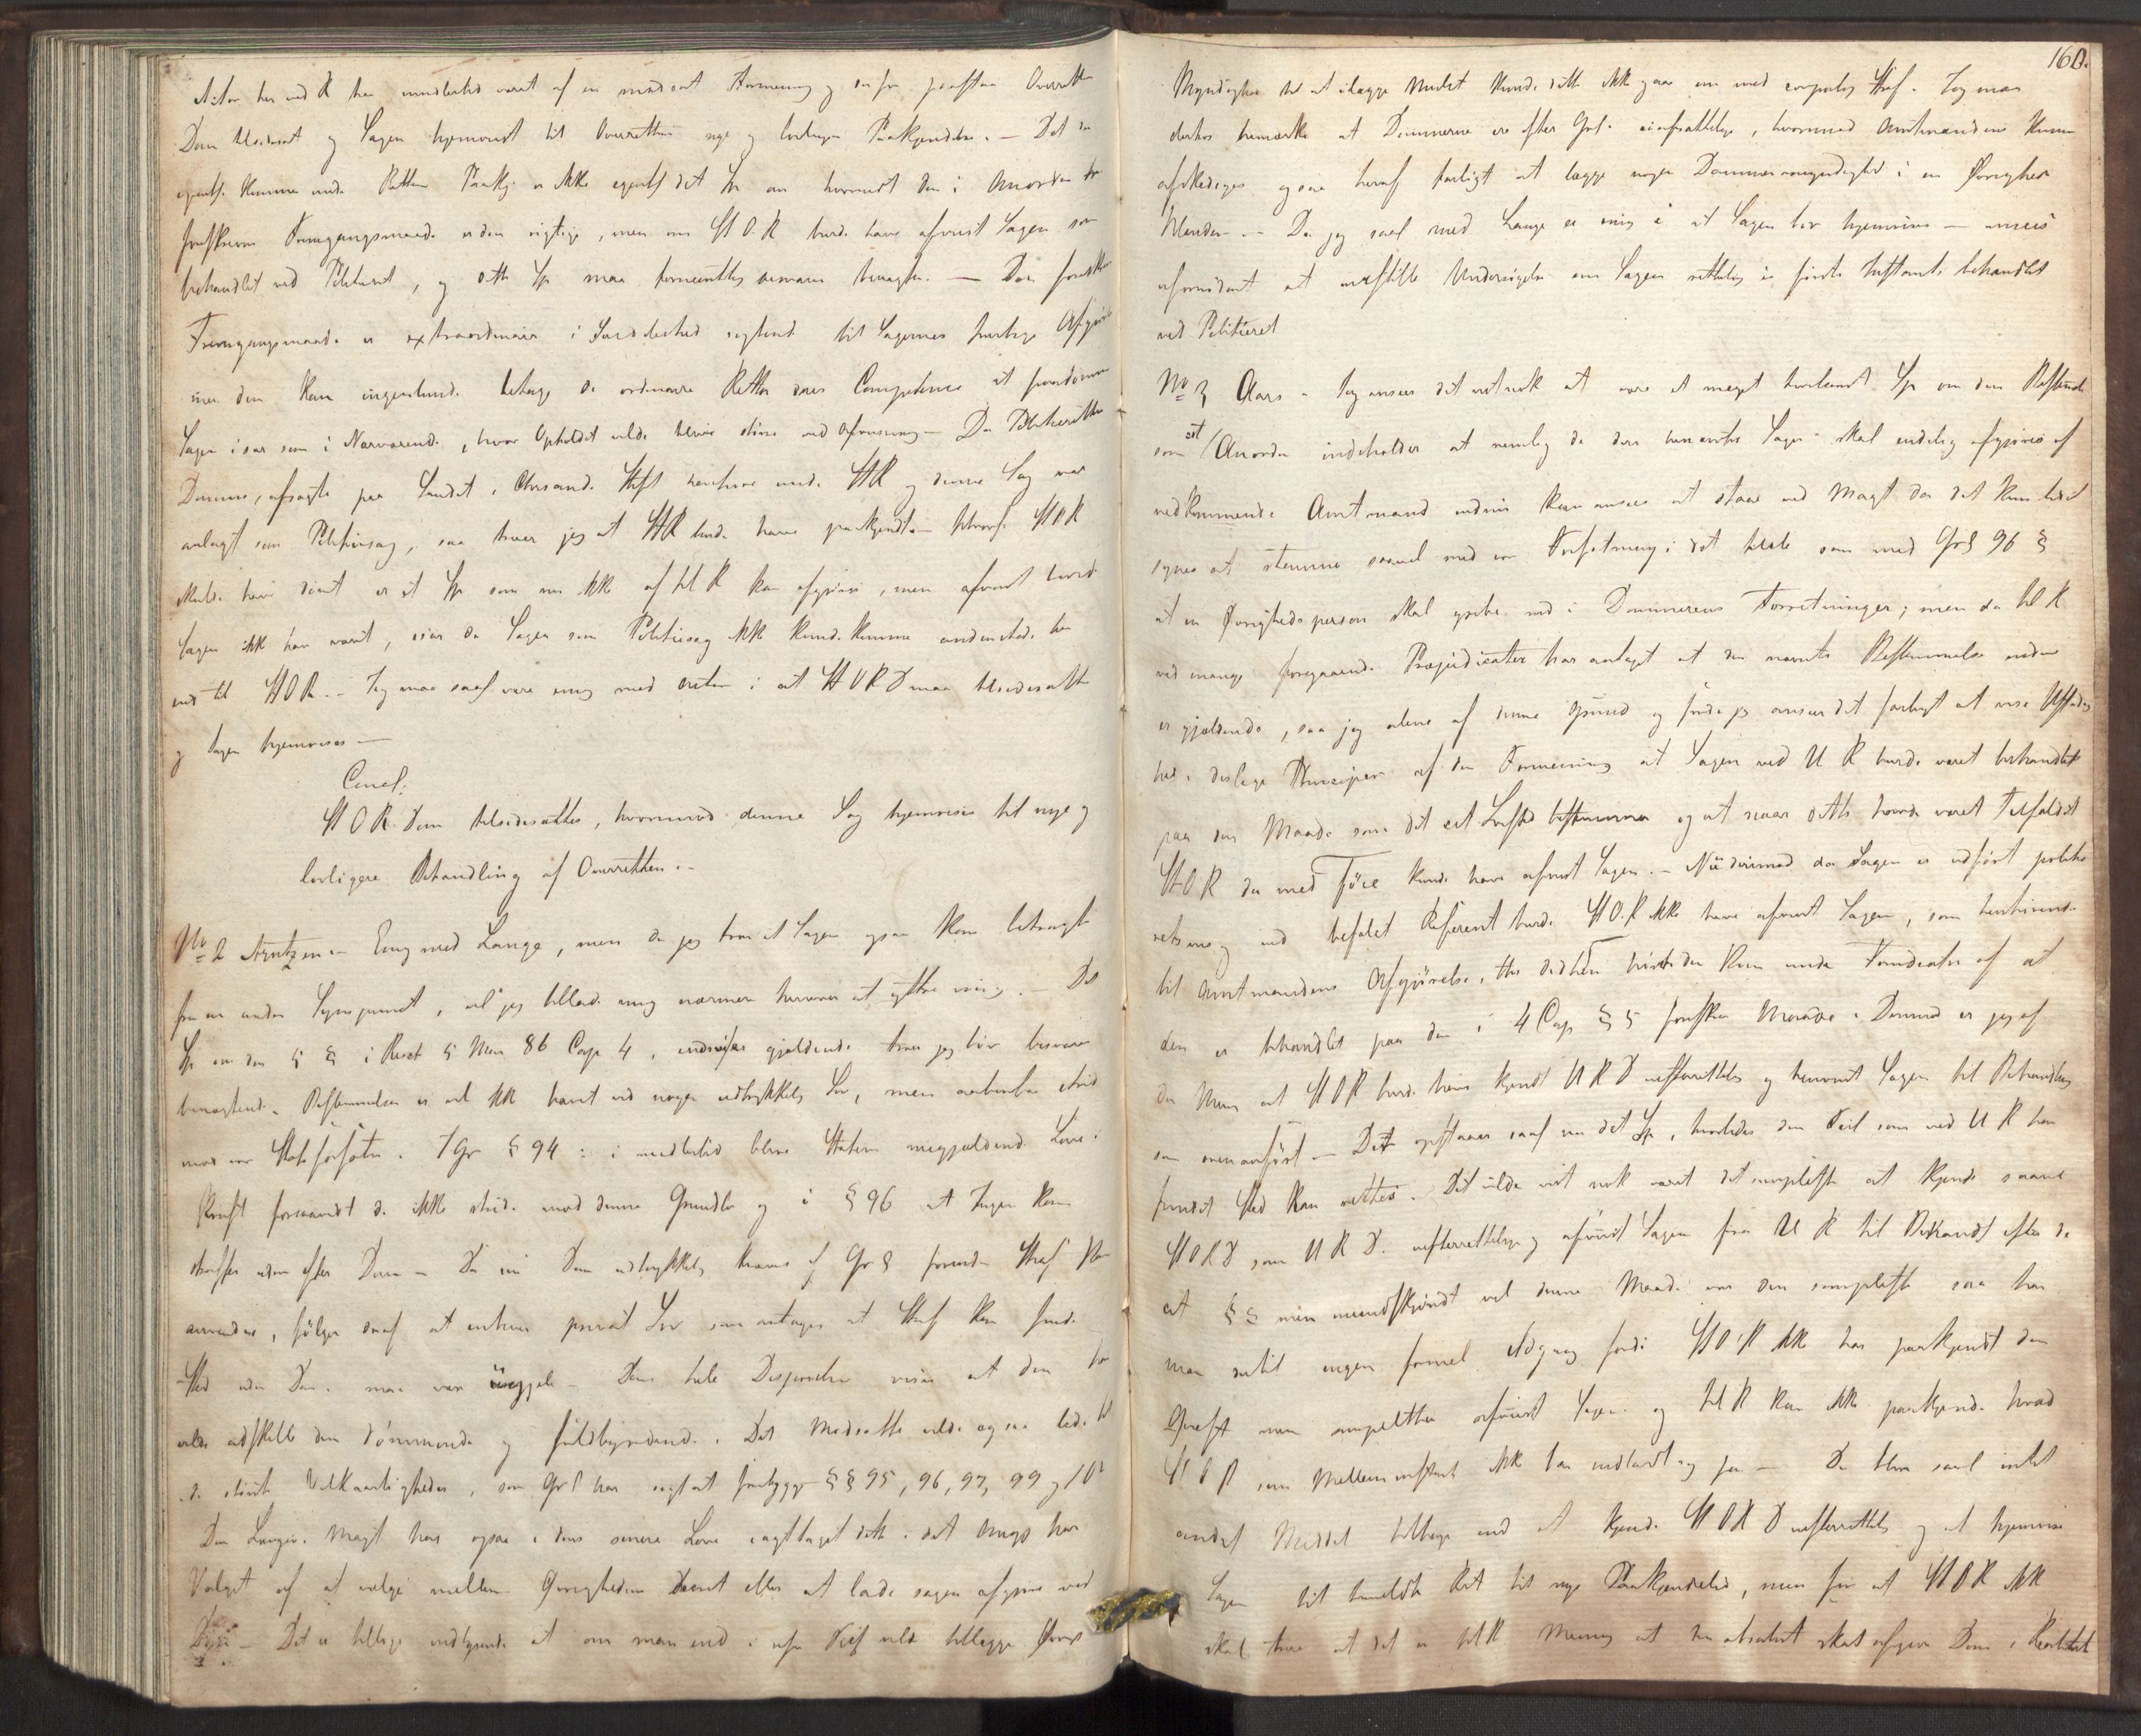 Actor her ved R har imidlertid været af en modsat Formening og derfor paastaaet Overretts
Dom tilsidesat og Sagen hjemviist til Overrettens nye og lovligere Paakjendelse. — Det der
egentl. kunne under Rettens Paakj: er ikke egentl det Sp om hvorvidt den i Anordn
foreskrevne Fremgangsmaade er den rigtige, men om St O. R burde have afviist Sagen som
behandlet ved Politieret, og dette Sp maa formeentlig besvares benægt. — Den foreskr
Fremgangsmaade er extraordinair i Særdeleshed sigtende til Sagernes hurtige Afgjør
men den kan ingenlunde betage de ordinaire Retter deres Competence at paadømme
Sagen især som i Nærværende, hvor Opholdet vilde blive større ved Afviisning — Da Politieretts
Domme, afsagte paa Landet i Chrsand. Stift henhøre under St R og denne Sag var
anlagt som Politiesag, saa troer jeg at St R burde have paakjendt — hvorl. St O R
skulde have dømt er et Sp som nu ikke af H R kan afgjøres, men afviist burde
Sagen ikke have været, især da Sagen som Politiesag ikke kunde komme andensteds hen
end til St O R. — Jeg maa saal være enig med Actor i at St O R D maa tilsidesættes
og Sagen hjemvises —
Concl:
St O R. Dom tilsidesættes, hvorimod denne Sag hjemvises til nye og
lovligere Behandling af Overretten. —
No 2 Arntzen — Enig med Lange, men da jeg troer at Sagen ogsaa kan betragtes
fra en anden Synspunct, vil jeg tillade mig nærmere herover at yttre mig. — Det
Sp om den 5 § i Rescr 5 Mai 86 Cap 4, endnu er gjældende troer jeg bør besvares
benægtende. Bestemmelsen er vel ikke hævet ved nogen udtrykkelig Lov, men strid
mod vor Statsforfatn. I Gr § 94 : imidlertid blive Statens nugjældende Love i
Kraft forsaavidt de ikke stride mod denne Grundlov og i § 96 at Ingen kan
straffes uden efter Dom — Da nu Dom udtrykkelig kræves af Grl forinden Straf kan
anvendes, følger deraf at enhver privat Lov som antager at Straf kan finde
Sted uden Dom maa være ugyld — Dens hele Disposition viser at den har
villet adskille den dømmende og fuldbyrdende. Det Modsatte vilde ogsaa lede til
de største Vilkaarligheder, som Grl har søgt at forebygge §§ 95, 96, 97, 99 og 101
Den Lovgiv. Magt har ogsaa i dens senere Love iagttaget dette i det Angj har
Valget af at vælge mellem Øvrigheden Decret eller at lade sagen afgjøres ved
Dom — Det er tillige indlysende at om man end i visse Tilf vilde tillægge Øvrigh
160.
Myndighed til at ilægge Mulct kunde dette ikke gaae an med corporlig Straf. Jeg maa
derhos bemærke at Dommerne ere efter Grl. uafsættelige, hvorimod Amtmændene kunne
afskediges ogsaa heraf farligt at lægge nogen Dommermyndighed i en Øvrigheds
Hænder. — Da jeg saal med Lange er enig i at Sagen bør hjemvises — ansees
ufornødent at anstille Undersøgelse om Sagen rettelig i første Instants behandlet
ved Politieret
No 3 Aars — Jeg ansees det vistnok at være et meget tvivlsomt Sp om den Bestemmelse
som ovt Anordn indeholder at nemlig de der benævnte Sager skal endelig afgjøres af
vedkommende Amtmand endnu kan ansees at staae ved Magt da det kun lidet
synes at stemme saavel med vor Forfatning i det hele som med Grl 96 §
at en Øvrighedsperson skal gribe ind i Dommerens Forretninger; men da H R
ved mange foregaaende Præjudicater har antaget at den nævnte Bestemmelse endnu
er gjældende, saa jeg alene af denne Grund og fordi jeg anseer det farligt at vise Ustadig
hed i deslige Principer af den Formening at Sagen ved U R burde været behandlet
paa den Maade som det cit Lovsted bestemmer og at naar dette havde været Tilfældet
St O R da med Føie kunde have afviist Sagen. — Nu derimod da Sagen er udført politie
retsviis og ved befalet Referent burde St O. R ikke have afviist Sagen, som henhørende
til Amtmandens Afgjørelse, thi didhen hørte den kun under Forudsætn af at
den er behandlet paa den i 4 Cap § 5 foreskr Maade. Dernæst er jeg af
den Mening at St O R burde have kjendt U R D uefterrettelig og henviist Sagen til Behandling
som ovenanført — Det opstaaer saal nu det Sp, hvorledes den Feil som ved U R har
fundet Sted kan rettes. Det vilde vist nok været det simpleste at kjende saavel
St O R D som U R D. uefterrettelige og afviist Sagen fra U R til Behandl efter de
cit §§ men uanseet vel denne Maade var den simpleste saa har
man dertil ingen formel Adgang fordi St O R ikke har paakjendt den
men simpelthen afviist Sagen og H R kan ikke paakjende hvad
St O R som Mellem instants ikke har indladt sig paa — Der bliver saal intet
andet Middel tilbage end at kjende St O R D uefterrettelig og at hjemvise
Sagen til bemeldte Ret til nye Paakjendelse, men for at St O R ikke
skal troe at det er H R Mening at den absolut skal afgive Dom i Realitet